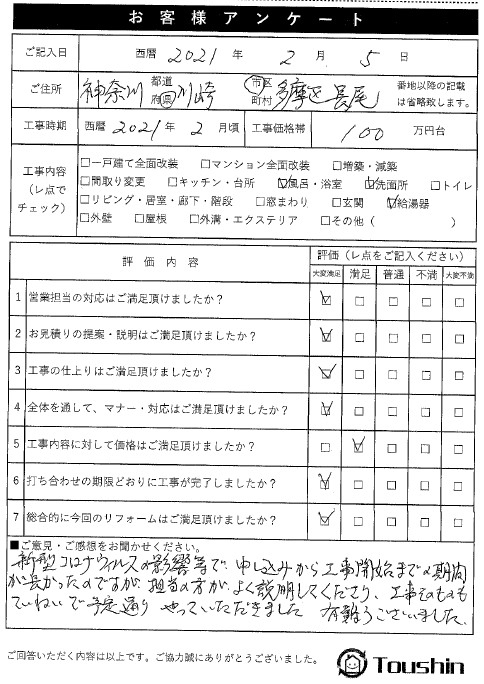 お客様アンケート
ご記入日 西暦 2021 年 2 月 5 日
ご住所 神奈川 都道府県 川崎 市区町村 多摩区長尾 番地以降の記載は省略致します。
工事時期 西暦 2021 年 2 月頃 工事価格帯 100 万円台
工事内容（レ点でチェック）
□一戸建て全面改装 □マンション全面改装 □増築・減築
□間取り変更 □キッチン・台所 ☑風呂・浴室 ☑洗面所 □トイレ
□リビング・居室・廊下・階段 □窓まわり □玄関 ☑給湯器
□外壁 □屋根 □外溝・エクステリア □その他（ ）
評価内容 評価（レ点をご記入ください）
大変満足 満足 普通 不満 大変不満
1 営業担当の対応はご満足頂けましたか？ ☑ □ □ □ □
2 お見積りの提案・説明はご満足頂けましたか？ ☑ □ □ □ □
3 工事の仕上りはご満足頂けましたか？ ☑ □ □ □ □
4 全体を通して、マナー・対応はご満足頂けましたか？ ☑ □ □ □ □
5 工事内容に対して価格はご満足頂けましたか？ □ ☑ □ □ □
6 打ち合わせの期限どおりに工事が完了しましたか？ ☑ □ □ □ □
7 総合的に今回のリフォームはご満足頂けましたか？ ☑ □ □ □ □
■ご意見・ご感想をお聞かせください。
新型コロナウィルスの影響等で、申し込みから工事開始までの期間
が長かったのですが、担当の方が、よく説明してくださり、工事そのものも
ていねいで予定通り やっていただきました 有難うございました。
ご回答いただく内容は以上です。ご協力誠にありがとうございました。
Toushin